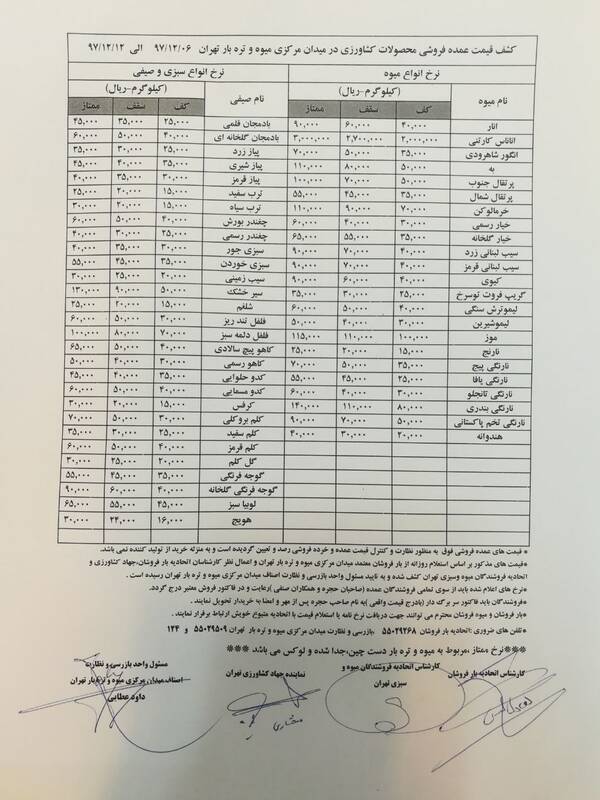 کشف قیمت عمده فروشی محصولات کشاورزی در میدان مرکزی میوه و تره بار تهران ۹۷/۱۲/۰۶ الی ۹۷/۱۲/۱۲
نرخ انواع میوه
نام میوه (کیلوگرم-ریال)
کف سقف ممتاز
انار ۴۰,۰۰۰ ۶۰,۰۰۰ ۹۰,۰۰۰
اناناس کارتنی ۲,۰۰۰,۰۰۰ ۲,۷۰۰,۰۰۰ ۳,۰۰۰,۰۰۰
انگور شاهرودی ۳۵,۰۰۰ ۵۰,۰۰۰ ۷۰,۰۰۰
به ۵۰,۰۰۰ ۸۰,۰۰۰ ۱۱۰,۰۰۰
پرتقال جنوب ۵۰,۰۰۰ ۷۰,۰۰۰ ۱۰۰,۰۰۰
پرتقال شمال ۳۵,۰۰۰ ۴۵,۰۰۰ ۵۵,۰۰۰
خرمالوکن ۷۰,۰۰۰ ۹۰,۰۰۰ ۱۱۰,۰۰۰
خیار رسمی ۳۰,۰۰۰ ۴۰,۰۰۰ ۶۰,۰۰۰
خیار گلخانه ۳۵,۰۰۰ ۵۵,۰۰۰ ۶۵,۰۰۰
سیب لبنانی زرد ۴۰,۰۰۰ ۷۰,۰۰۰ ۹۰,۰۰۰
سیب لبنانی قرمز ۴۰,۰۰۰ ۷۰,۰۰۰ ۹۰,۰۰۰
کیوی ۴۰,۰۰۰ ۶۰,۰۰۰ ۹۰,۰۰۰
گریپ فروت توسرخ ۲۵,۰۰۰ ۳۰,۰۰۰ ۳۵,۰۰۰
لیموترش سنگی ۴۰,۰۰۰ ۵۰,۰۰۰ ۶۰,۰۰۰
لیموشیرین ۳۰,۰۰۰ ۴۰,۰۰۰ ۵۰,۰۰۰
موز ۱۰۰,۰۰۰ ۱۱۰,۰۰۰ ۱۱۵,۰۰۰
نارنج ۱۵,۰۰۰ ۲۰,۰۰۰ ۲۵,۰۰۰
نارنگی پیج ۳۵,۰۰۰ ۵۰,۰۰۰ ۷۰,۰۰۰
نارنگی یافا ۲۵,۰۰۰ ۴۵,۰۰۰ ۵۵,۰۰۰
نارنگی تانجلو ۳۰,۰۰۰ ۴۰,۰۰۰ ۶۰,۰۰۰
نارنگی بندری ۸۰,۰۰۰ ۱۱۰,۰۰۰ ۱۴۰,۰۰۰
نارنگی تخم پاکستانی ۵۰,۰۰۰ ۷۰,۰۰۰ ۹۰,۰۰۰
هندوانه ۲۰,۰۰۰ ۳۰,۰۰۰ ۴۰,۰۰۰
نرخ انواع سبزی و صیفی
نام صیفی (کیلوگرم-ریال)
کف سقف ممتاز
بادمجان قلمی ۲۵,۰۰۰ ۳۵,۰۰۰ ۴۵,۰۰۰
بادمجان گلخانه ای ۴۰,۰۰۰ ۵۰,۰۰۰ ۶۰,۰۰۰
پیاز زرد ۲۵,۰۰۰ ۳۰,۰۰۰ ۳۵,۰۰۰
پیاز شیری ۳۵,۰۰۰ ۴۰,۰۰۰ ۴۵,۰۰۰
پیاز قرمز ۳۰,۰۰۰ ۳۵,۰۰۰ ۴۰,۰۰۰
ترب سفید ۱۵,۰۰۰ ۲۰,۰۰۰ ۲۵,۰۰۰
ترب سیاه ۱۵,۰۰۰ ۲۰,۰۰۰ ۳۰,۰۰۰
چغندر بورش ۴۰,۰۰۰ ۵۰,۰۰۰ ۶۰,۰۰۰
چغندر رسمی ۲۵,۰۰۰ ۳۰,۰۰۰ ۴۰,۰۰۰
سبزی جور ۳۰,۰۰۰ ۳۵,۰۰۰ ۴۰,۰۰۰
سبزی خوردن ۳۵,۰۰۰ ۴۵,۰۰۰ ۵۵,۰۰۰
سیب زمینی ۲۰,۰۰۰ ۲۵,۰۰۰ ۳۰,۰۰۰
سیر خشک ۵۰,۰۰۰ ۹۰,۰۰۰ ۱۳۰,۰۰۰
شلغم ۱۵,۰۰۰ ۲۰,۰۰۰ ۲۵,۰۰۰
فلفل تند ریز ۳۰,۰۰۰ ۵۰,۰۰۰ ۶۰,۰۰۰
فلفل دلمه سبز ۷۰,۰۰۰ ۸۰,۰۰۰ ۱۰۰,۰۰۰
کاهو پیچ سالادی ۴۰,۰۰۰ ۵۰,۰۰۰ ۶۵,۰۰۰
کاهو رسمی ۳۰,۰۰۰ ۴۰,۰۰۰ ۵۰,۰۰۰
کدو حلوایی ۳۵,۰۰۰ ۴۰,۰۰۰ ۴۵,۰۰۰
کدو مسمایی ۴۰,۰۰۰ ۵۰,۰۰۰ ۶۰,۰۰۰
کرفس ۱۵,۰۰۰ ۲۰,۰۰۰ ۳۰,۰۰۰
کلم بروکلی ۳۰,۰۰۰ ۵۰,۰۰۰ ۷۰,۰۰۰
کلم سفید ۲۵,۰۰۰ ۳۰,۰۰۰ ۳۵,۰۰۰
کلم قرمز ۴۰,۰۰۰ ۵۰,۰۰۰ ۶۰,۰۰۰
گل کلم ۲۰,۰۰۰ ۲۵,۰۰۰ ۳۰,۰۰۰
گوجه فرنگی ۳۵,۰۰۰ ۴۵,۰۰۰ ۵۵,۰۰۰
گوجه فرنگی گلخانه ۴۰,۰۰۰ ۶۰,۰۰۰ ۹۰,۰۰۰
لوبیا سبز ۴۵,۰۰۰ ۵۵,۰۰۰ ۶۵,۰۰۰
هویج ۱۶,۰۰۰ ۲۴,۰۰۰ ۳۰,۰۰۰
* قیمت های عمده فروشی فوق به منظور نظارت و کنترل قیمت عمده و خرده فروشی رصد و تعیین گردیده است و به منزله خرید از تولید کننده نمی باشد.
*قیمت های مذکور بر اساس استعلام روزانه از بار فروشان معتمد میدان مرکزی میوه و تره بار تهران و اعمال نظر کارشناسان اتحادیه بار فروشان،جهاد کشاورزی و
اتحادیه فروشندگان میوه وسبزی تهران کشف شده و به تایید مسئول واحد بازرسی و نظارت اصناف میدان مرکزی میوه و تره بار تهران رسیده است .
*نرخ های اعلام شده باید از سوی تمامی فروشندگان عمده (صاحبان حجره و همکاران صنفی )رعایت و در فاکتور فروش معتبر درج گردد.
*فروشندگان باید فاکتور سر برگ دار (بادرج قیمت واقعی )به نام صاحب حجره پس از مهر و امضا به خریدار تحویل نمایند .
*بار فروشان و میوه فروشان محترم می توانند جهت دریافت نرخ نامه یا استعلام قیمت با اتحادیه متبوع خویش ارتباط برقرار نمایند .
*تلفن های ضروری :اتحادیه بار فروشان ۵۵۰۲۹۲۶۸ ،بازرسی و نظارت میدان مرکزی میوه و تره بار تهران ۵۵۰۲۹۵۰۹ و ۱۲۴
***نرخ ممتاز ،مربوط به میوه و تره بار دست چین،جدا شده و لوکس می باشد ***
کارشناس اتحادیه بار فروشان
کارشناس اتحادیه فروشندگان میوه و
سبزی تهران
نماینده جهاد کشاورزی تهران
مسئول واحد بازرسی و نظارت
اصناف میدان مرکزی میوه و تره بار تهران
داود عطایی